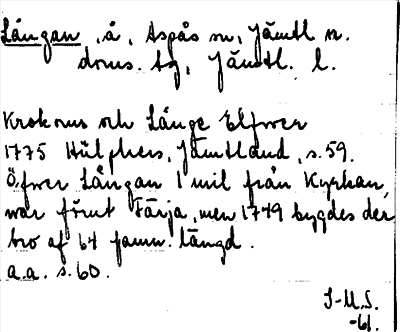 Långan, å, Aspås sn, Jämtl n.
doms. tg, Jämtl. l.
Krokoms och Långe Elfwer
1775 Hülphers, Jämtland, s. 59.
Öfwer Långan 1 mil från Kyrkan,
war förut Färja, men 1749 bygdes der
bro af 64 famn. längd.
a.a. s. 60.
S-M.S.
-61.